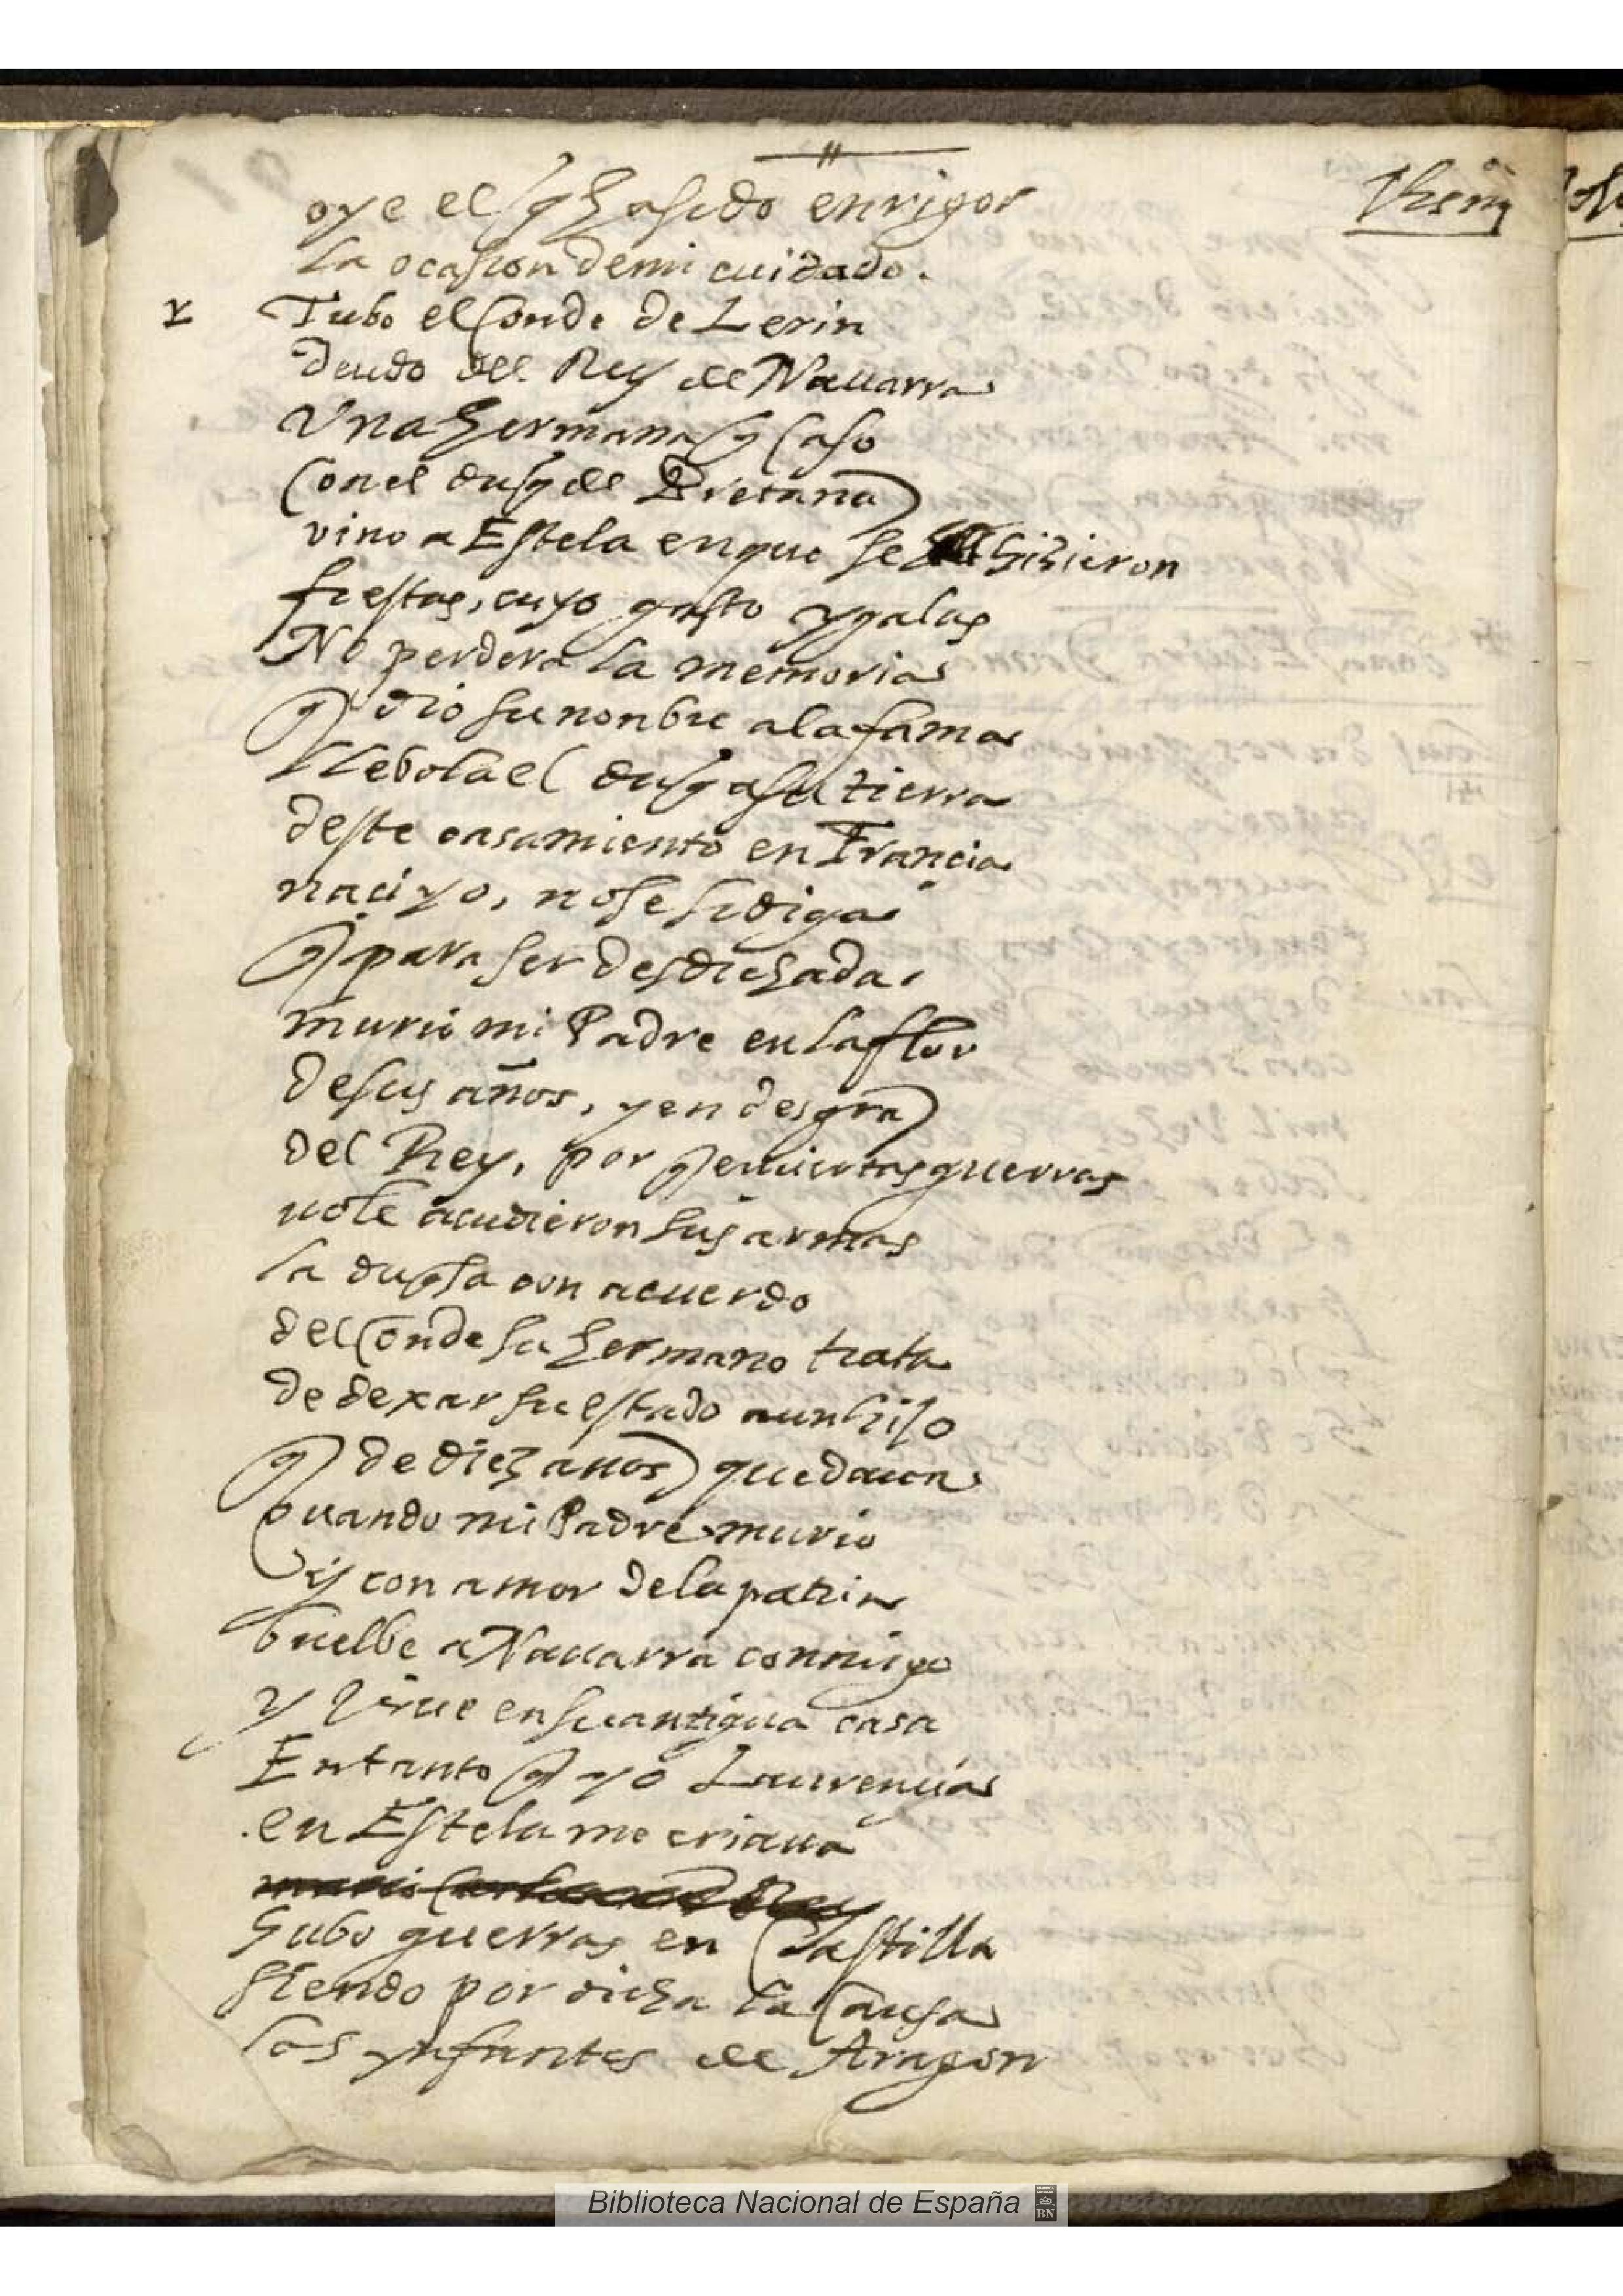 oye el q ha sido en rigor
la ocasion de mi cuidado.
Tubo el Conde de Lerin
deudo del Rey de Nauarra
Vna hermana q Caso
Con el duq de Bretaña
vino a Estela en que se hizieron
fiestas, cuyo gasto y galas
No perdera la memoria
q dio su nonbre a la fama
llebola el duq a su tierra
deste casamiento en Francia
naci yo, no se si diga
q para ser desdichada.
murio mi Padre en la flor
de sus años, y en desgra
del Rey, por q en ciertas guerras
no le acudieron sus armas
la duqsa con acuerdo
del Conde su hermano trata
de dexar su estado a un hijo
q de diez años quedaua
quando mi Padre murio
y con amor de la patria
buelbe a Nauarra conmigo
y viue en su antigua casa
Entanto q yo Laurencia
en Estela me criaua
hubo guerras en Castilla
siendo por dicha la Causa
los ynfantes de Aragon
Biblioteca Nacional de España
BN